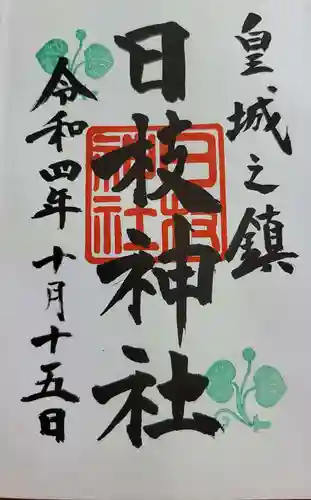 皇城之鎮
日枝神社
令和四年十月十五日
日枝神社